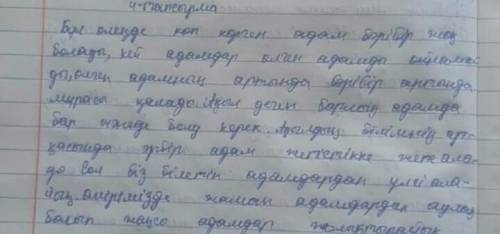 4-тапсырма
Бұл өлеңде көп көрген адам бәрібір жоқ
болады, кей адамдар өлген адамды ойламай
ды, өлген адамның артында бәрібір артында
мұрасы қалады. Ақыл деген барлық адамда
бар және болу керек. Ақылдың білімнің ар
қасында әрбір адам жетістікке жете ала
ды сол біз білетін адамдардан үлгі ала
йық өмірімізде жаман адамдардан аулақ
болып жақсы адамдар